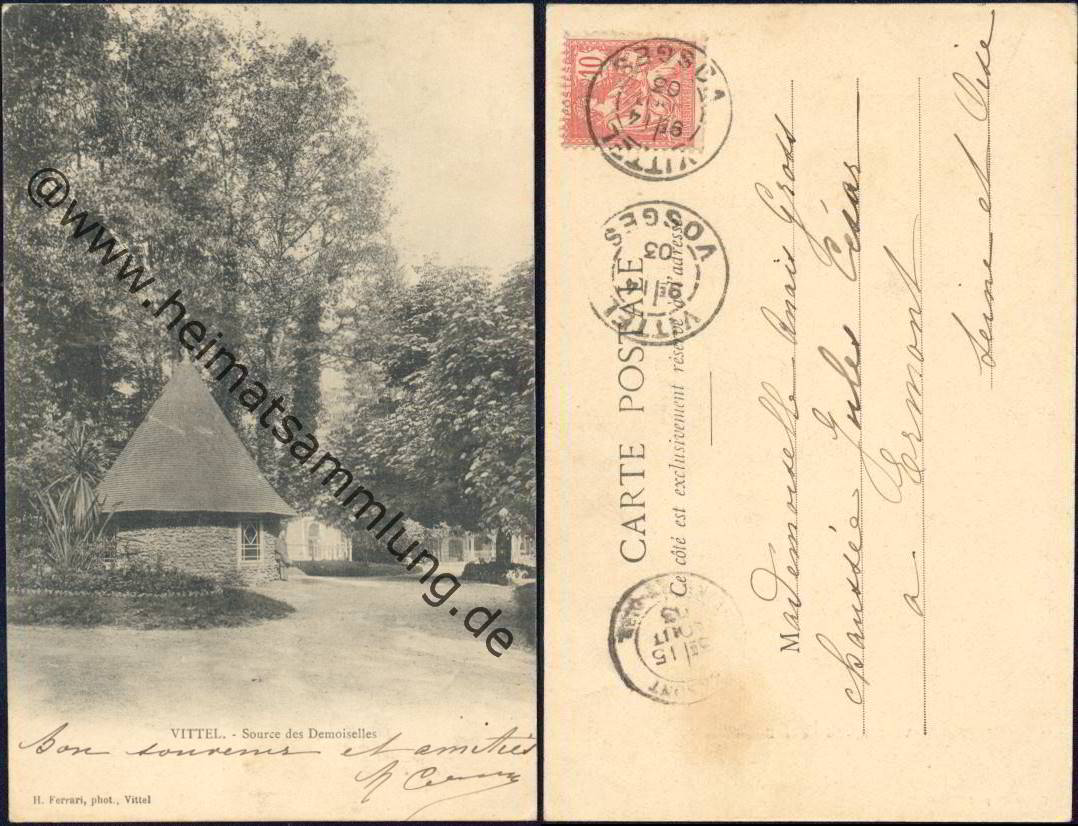 @www.heimatsammlung.de
VITTEL. - Source des Demoiselles
Bon souvenir et amitiés
H. Ferrari, phot., Vittel
10
VITTEL
VOSGES
03
VITTEL
VOSGES
03
CARTE POSTALE
Ce côté est exclusivement réservé à l'adresse
Mademoiselle Anaïs Gross
chaussée Jules César
a Ermont
Seine et Oise